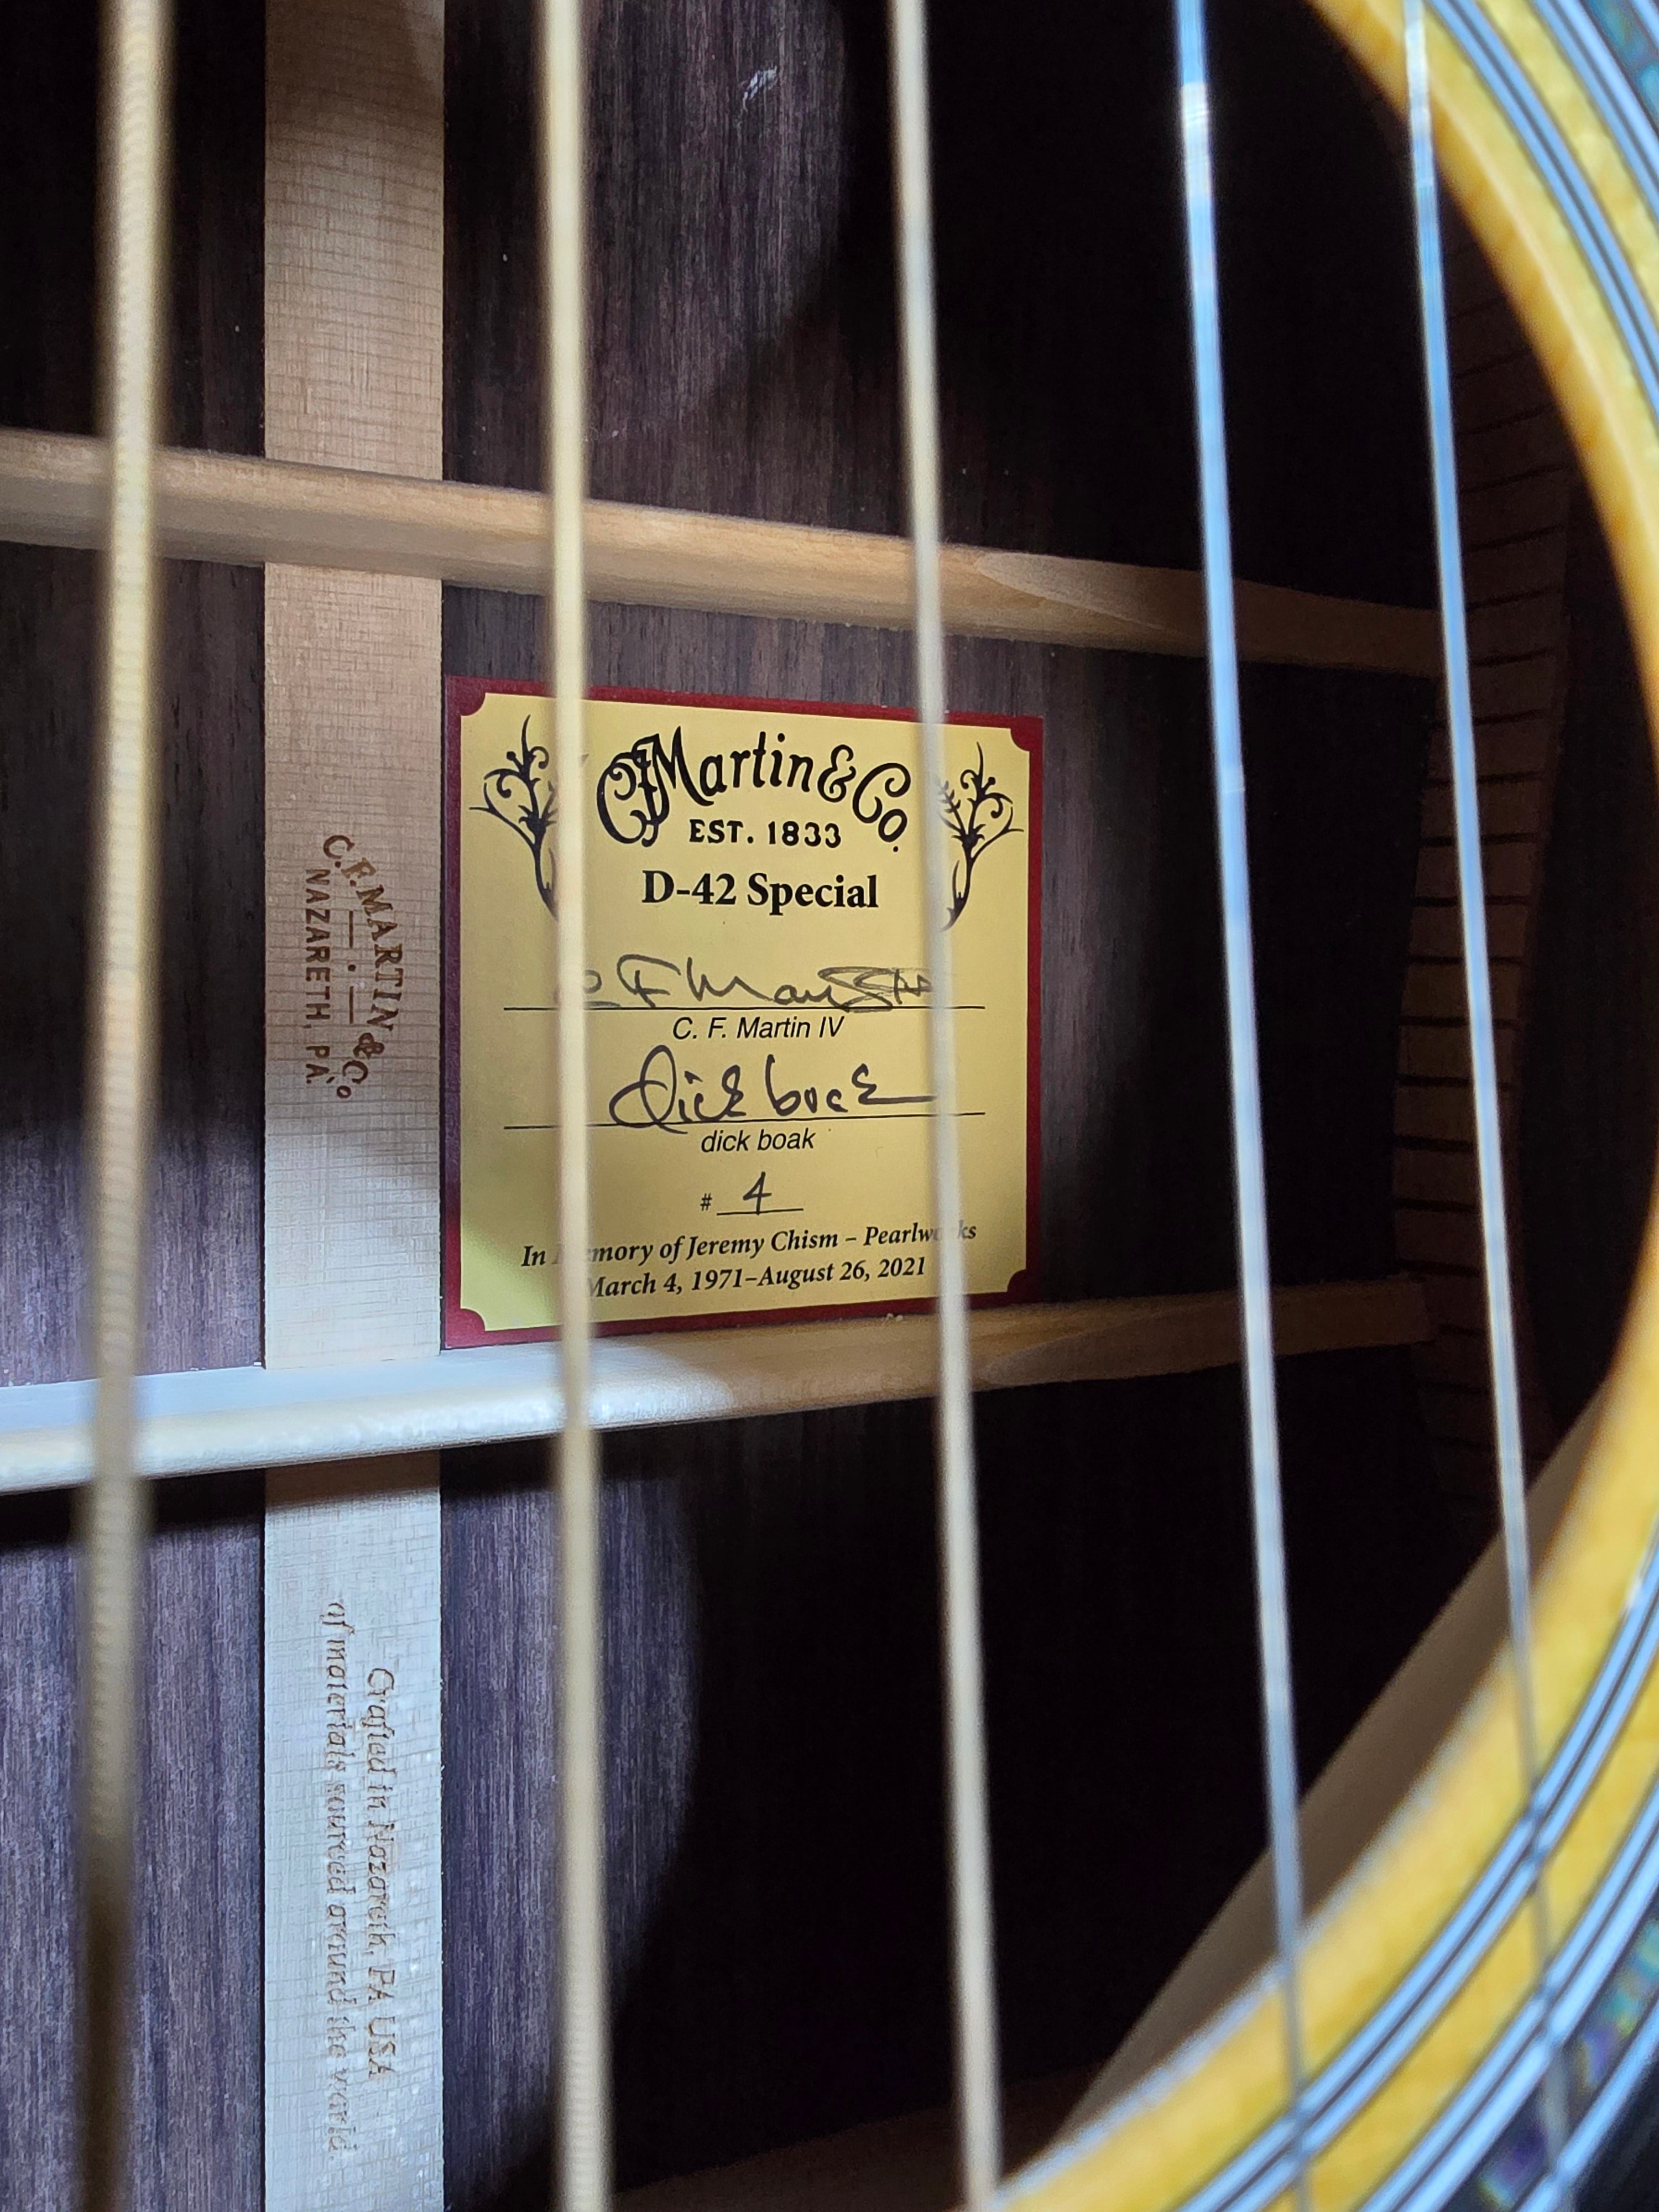 C.F. Martin & Co.
EST. 1833
D-42 Special
C. F. Martin IV
dick boak
dick boak
# 4
In Memory of Jeremy Chism – Pearlworks
March 4, 1971–August 26, 2021
C.F. MARTIN & Co
NAZARETH, PA.
Crafted in Nazareth, PA USA
of materials sourced around the world.